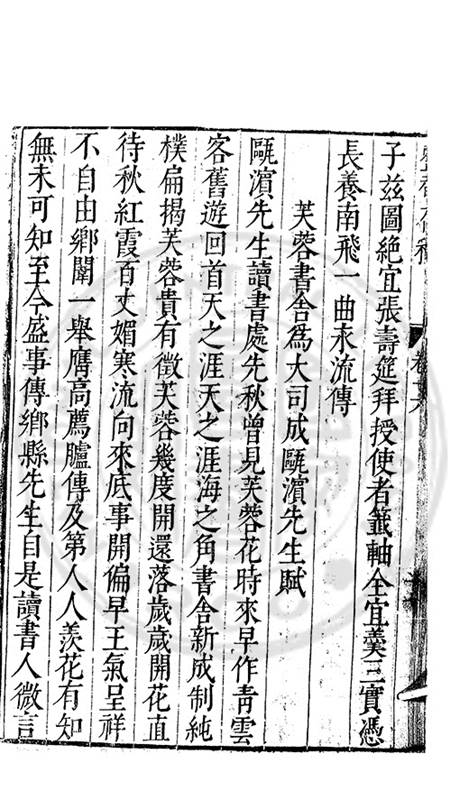 子茲圖絶宜張壽筵拜授使者籖軸全宜羙三實憑
長養南飛一曲永流傳
芙蓉書舍為大司成甌濱先生賦
甌濱先生讀書處先秋曾見芙蓉花時來早作青雲
客舊遊回首天之涯天之涯海之角書舍新成制純
樸扁揭芙蓉貴有徵芙蓉幾度開還落歲歲開花直
待秋紅霞百丈媚寒流向來底事開偏早王氣呈祥
不自由鄉闈一舉膺高薦臚傳及第人人羨花有知
無未可知至今盛事傳鄉縣先生自是讀書人微言